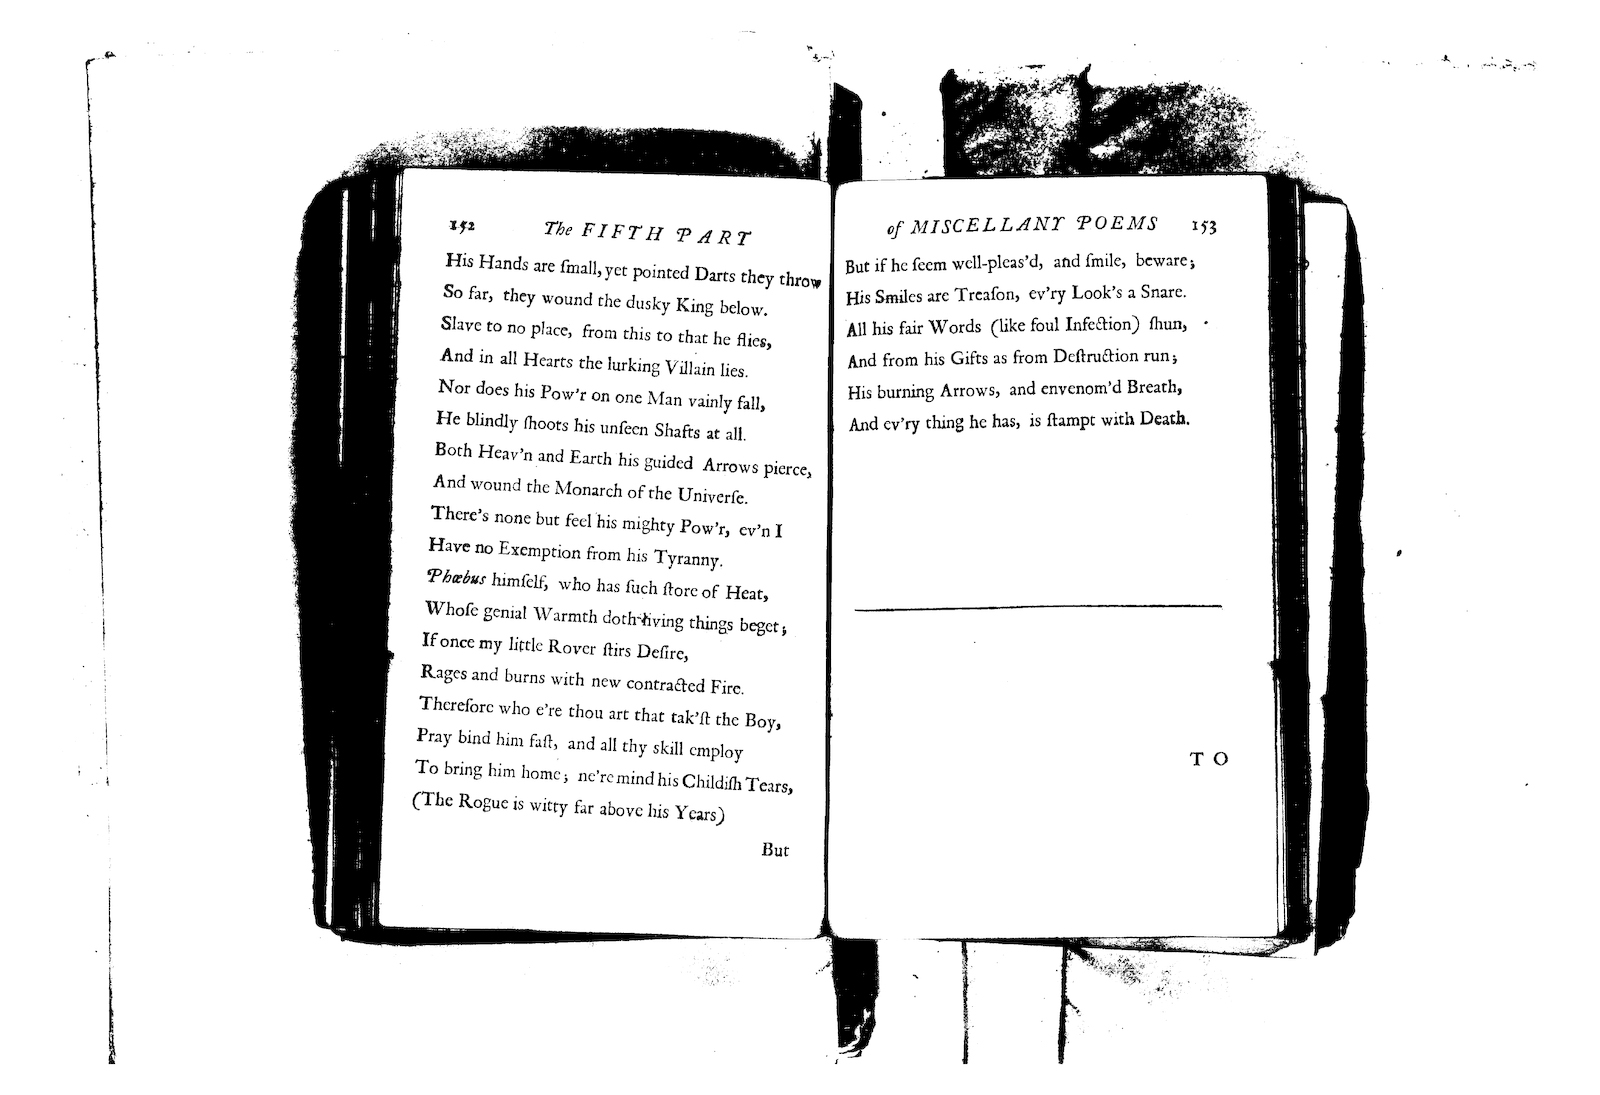 152 The FIFTH PART
His Hands are ſmall, yet pointed Darts they throw
So far, they wound the dusky King below.
Slave to no place, from this to that he flies,
And in all Hearts the lurking Villain lies.
Nor does his Pow'r on one Man vainly fall,
He blindly ſhoots his unſeen Shafts at all.
Both Heav'n and Earth his guided Arrows pierce,
And wound the Monarch of the Univerſe.
There's none but feel his mighty Pow'r, ev'n I
Have no Exemption from his Tyranny.
Phœbus himſelf, who has ſuch ſtore of Heat,
Whoſe genial Warmth doth living things beget;
If once my little Rover ſtirs Deſire,
Rages and burns with new contracted Fire.
Therefore who e're thou art that tak'ſt the Boy,
Pray bind him faſt, and all thy skill employ
To bring him home; ne're mind his Childiſh Tears,
(The Rogue is witty far above his Years)
But
of MISCELLANY POEMS 153
But if he ſeem well-pleas'd, and ſmile, beware;
His Smiles are Treaſon, ev'ry Look's a Snare.
All his fair Words (like foul Infection) ſhun,
And from his Gifts as from Deſtruction run;
His burning Arrows, and envenom'd Breath,
And ev'ry thing he has, is ſtampt with Death.
TO